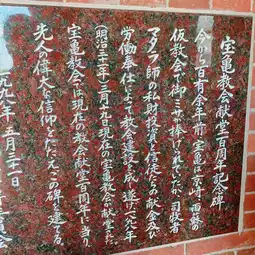 宝亀教会献堂百周年記念碑
今から百有余年前、宝亀は
仮教会で御ミサが捧げられていたが、司牧者
マタラ師の私財投入と信徒らの献金及び
労働奉仕によって教会建設を成し遂げ一八九八年
(明治三十一年)三月九日現在の宝亀教会が献堂した。
宝亀教会は現在の教会献堂百周年に当り、
先人の偉大な信仰をたたえこの碑を建てる。
一九九八年 五月三十一日